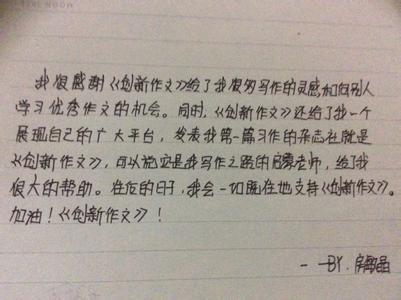 我很感谢《创新作文》给了我很多写作的灵感和向别人
学习优秀作文的机会。同时,《创新作文》还给了我一个
展现自己的广大平台，发表我第一篇习作的杂志社就是
《创新作文》，可以说它是我写作之路的启蒙老师，给了我
很大的帮助。在后的日子，我会一如既往地支持《创新作文》。
加油！《创新作文》！
——BY.